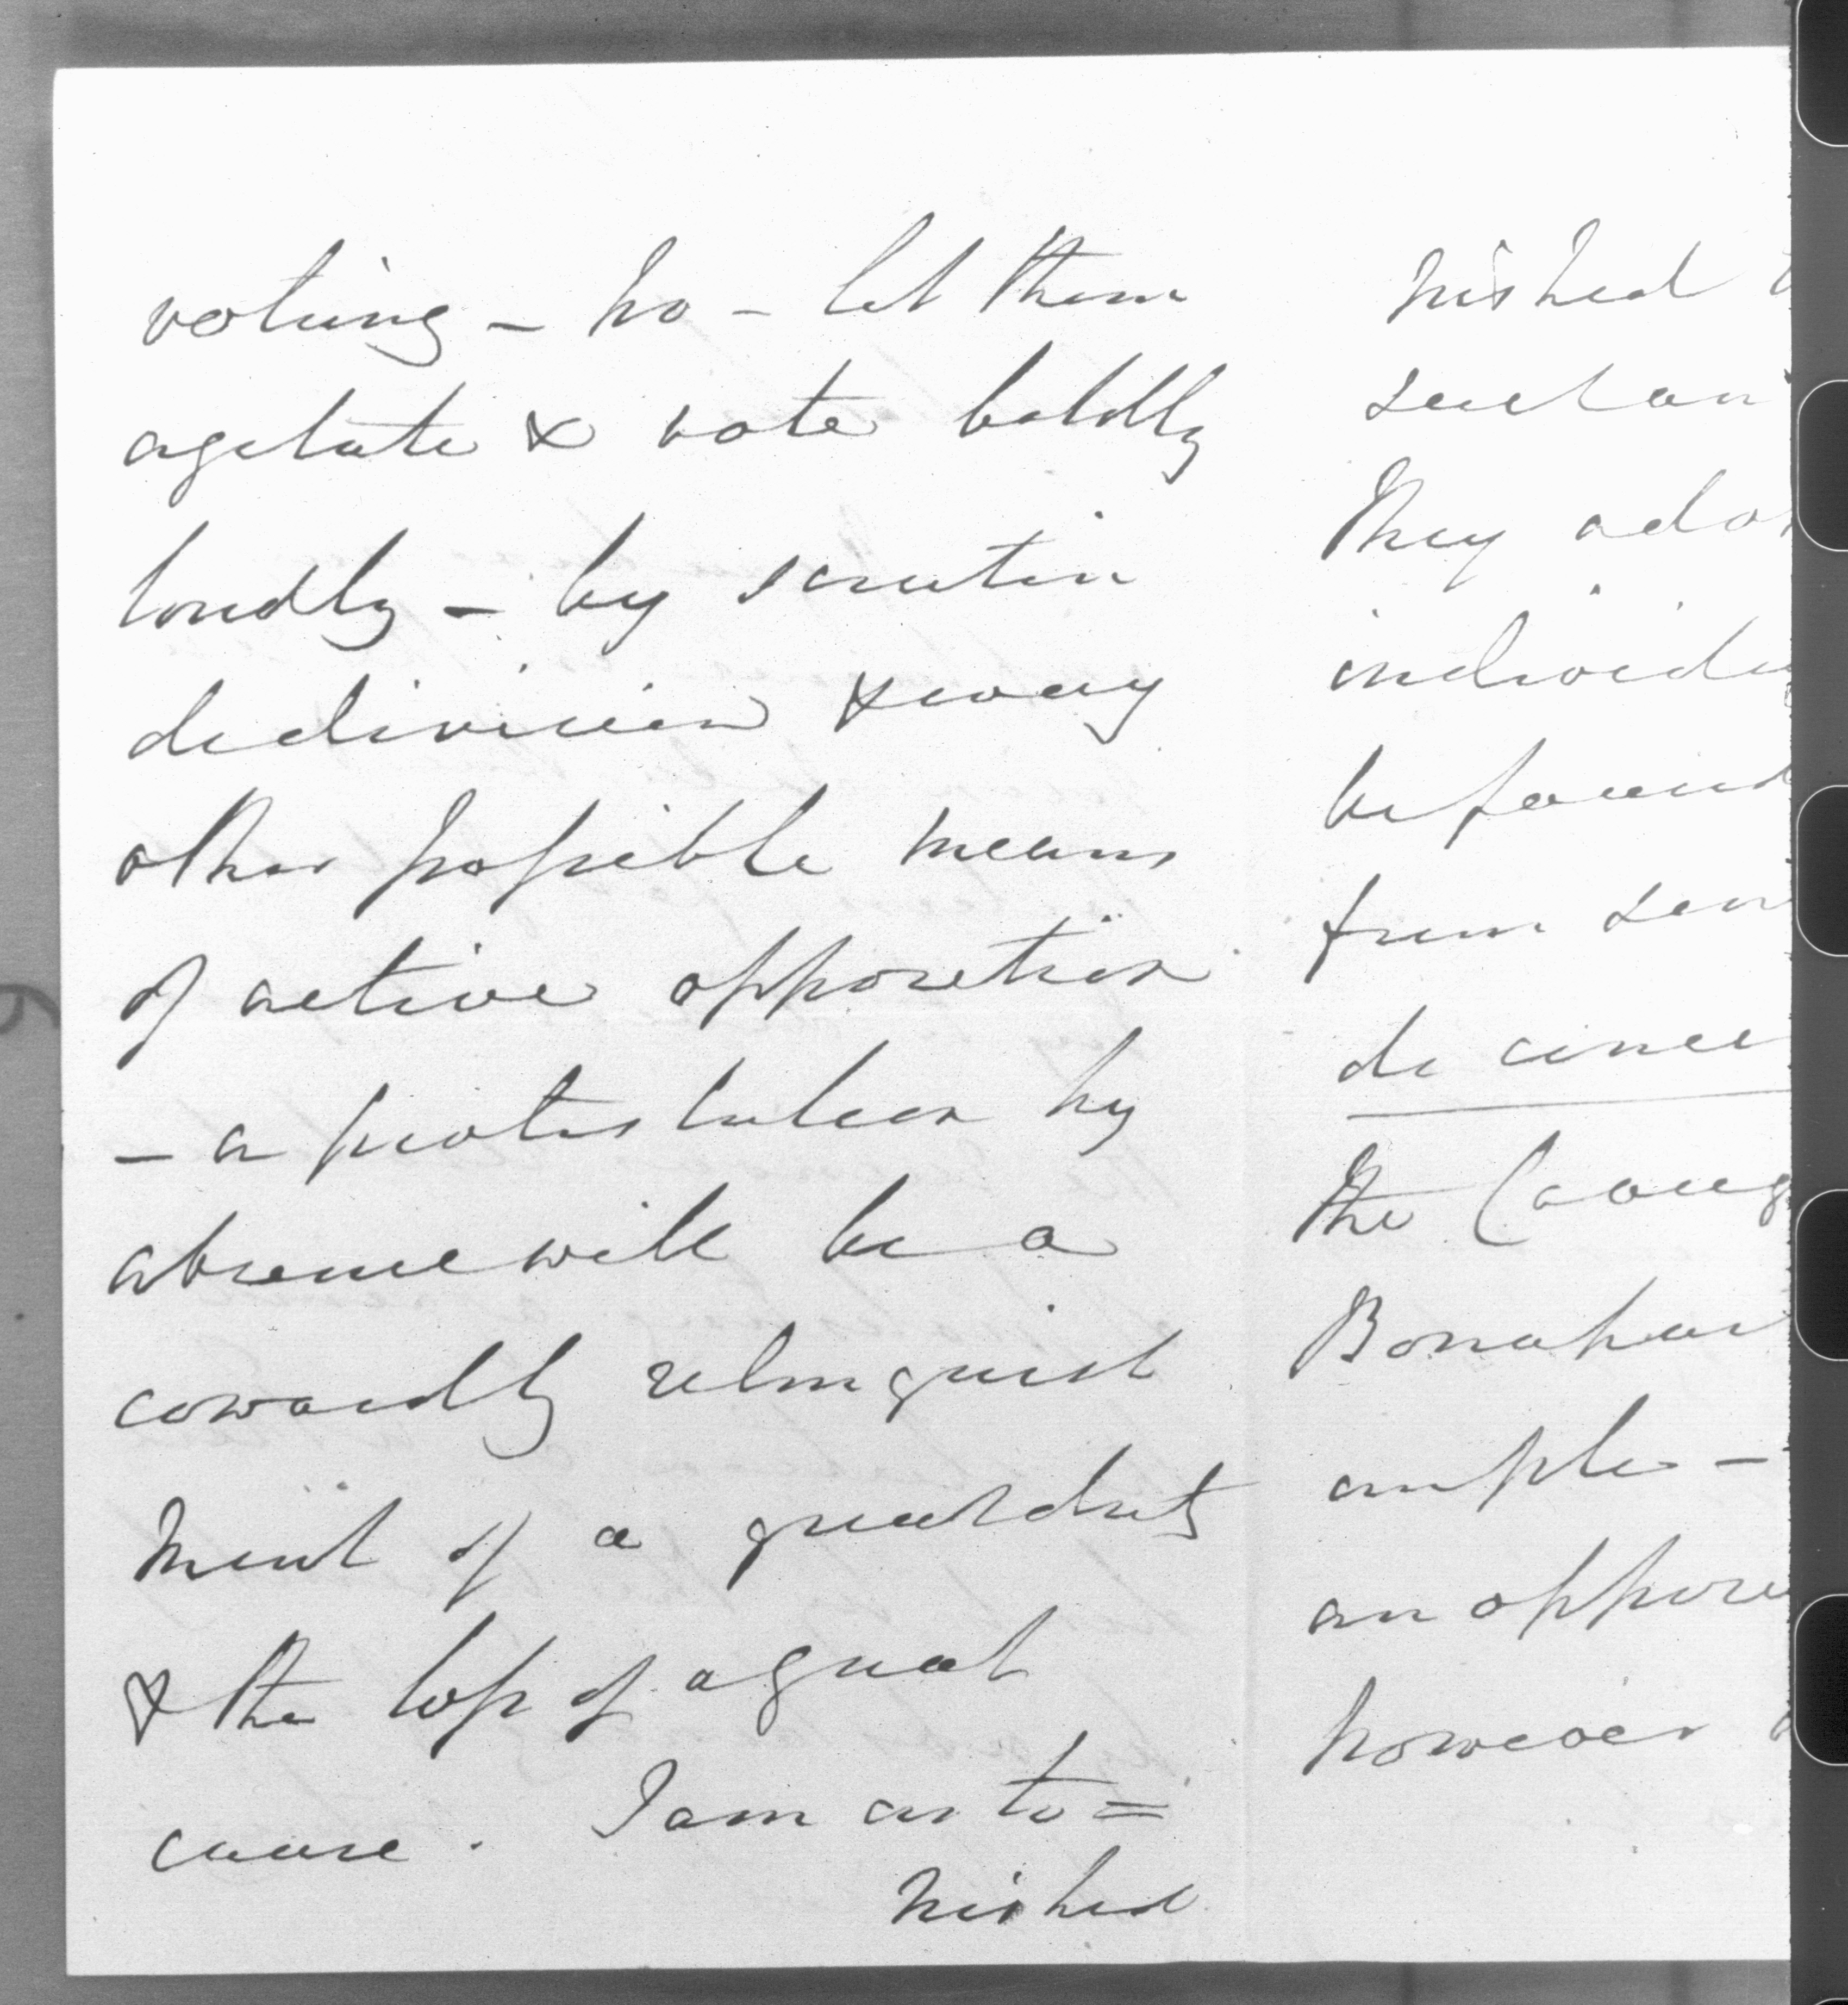 voting – no – let them
agitate & vote boldly
loudly – by scrutin
de division & every
other possible means
of active opposition
– a protestation by
absence will be a
cowardly relinquish
ment of a great duty
& the loss of a great
cause. I am asto=
nished
nished
such an
they
individu
be found
from
de
the
Bonapar
ample –
an opposi
however